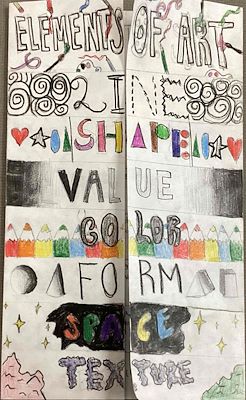 ELEMENTS OF ART
LINE
SHAPE
VALUE
COLOR
FORM
SPACE
TEXTURE